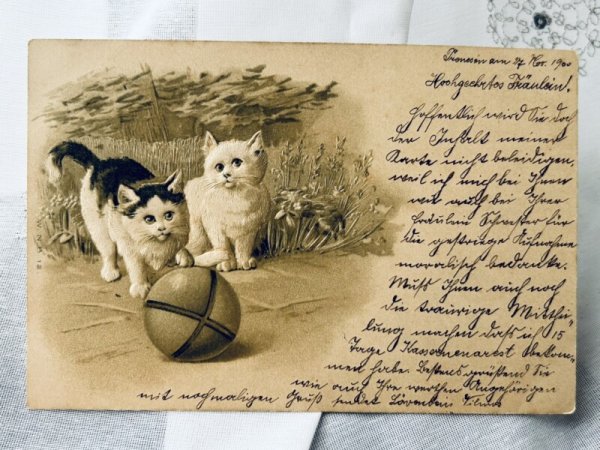 am 27 Nov. 1900
Hochgeehrtes Fräulein!
Hoffentlich wird Sie doch
der Inhalt meiner
Karte nicht beleidigen,
weil ich mich bei Ihnen
wie auch bei Ihrer
Fräulein Schwester für
die gestrige Aufnahme
moralisch bedanke.
Muß Ihnen auch noch
die traurige Mitthei-
lung machen daß ich 15
Tage Kasernenarest bekom-
men habe. Bestens grüßend Sie
wie auch Ihre werthen Angehörigen
mit nochmaligen Gruß sendet